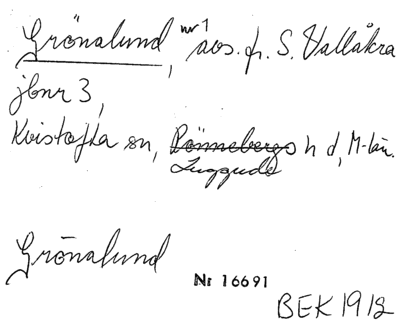 Grönalund, nr 1 avs. fr. S. Vallåkra
jbnr 3,
Kvistofta sn, Rönnebergs h d, M-län.
Luggude
Grönalund
Nr 16691
BEK 1912